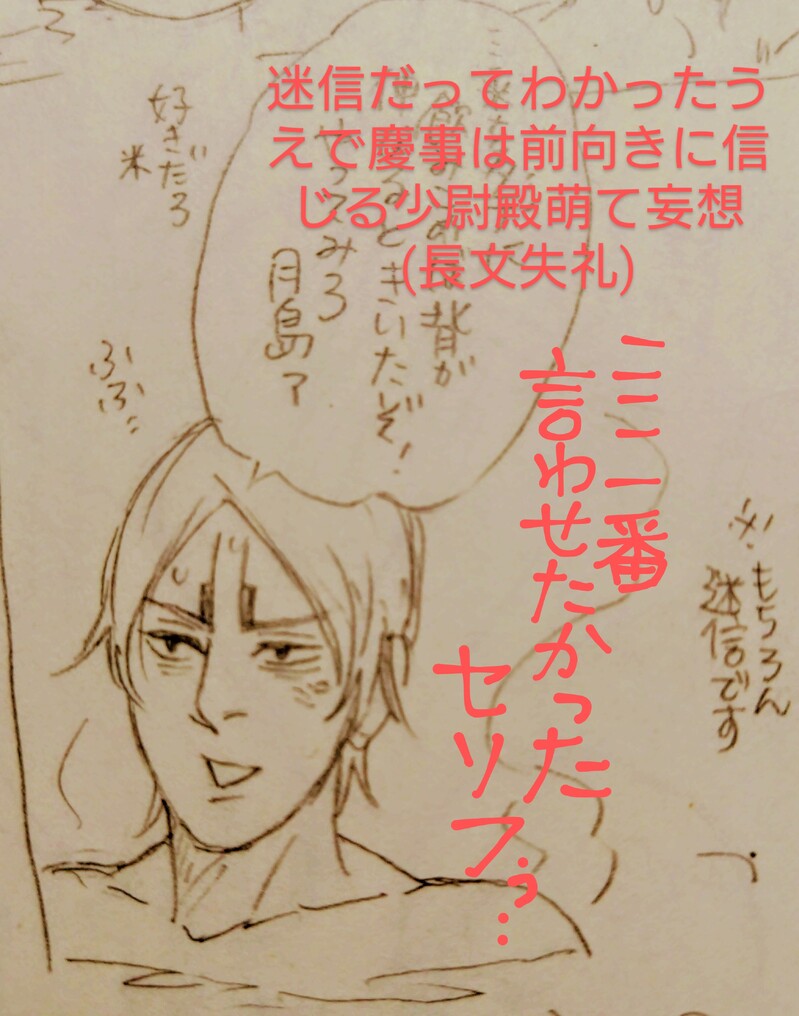 迷信だってわかったう
えで慶事は前向きに信
じる少尉殿萌て妄想
(長文失礼)
ここ一番
言わせたかった
セリフぅ…
背が
るときいたぞ!
やってみろ
月島ァ
好きだろ
米
ふふ…
※もちろん
迷信です